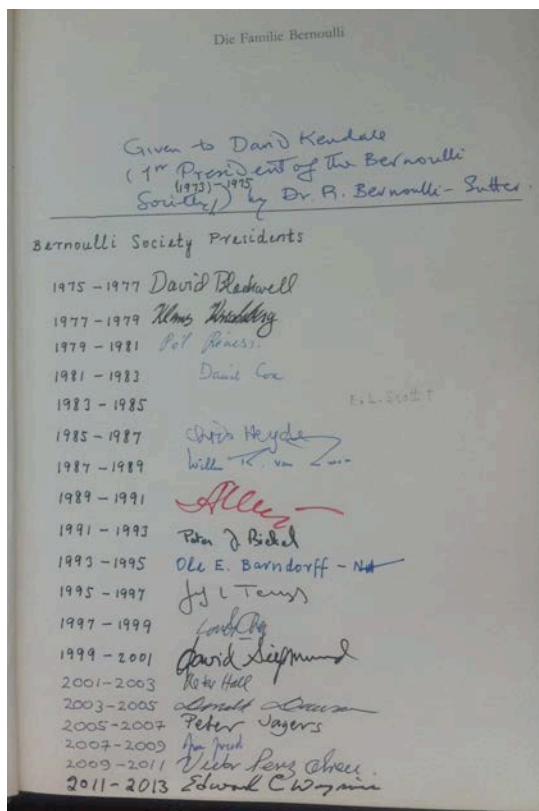 Die Familie Bernoulli
Given to David Kendale
(1st President of the Bernoulli
(1973)-1975
Society) by Dr. R. Bernoulli-Sutter.
Bernoulli Society Presidents
1975-1977 David Blackwell
1977-1979 Klaus
1979-1981
1981-1983 David Cox
1983-1985 E.L. Scott
1985-1987 Chris Heyde
1987-1989 Willem R. van Zwet
1989-1991
1991-1993 Peter J. Bickel
1993-1995 Ole E. Barndorff-N
1995-1997
1997-1999 Louis Chen
1999-2001 David Siegmund
2001-2003 Peter Hall
2003-2005 Donald Dawson
2005-2007 Peter Jagers
2007-2009
2009-2011 Victor Perez Abreu
2011-2013 Edward C Waymire